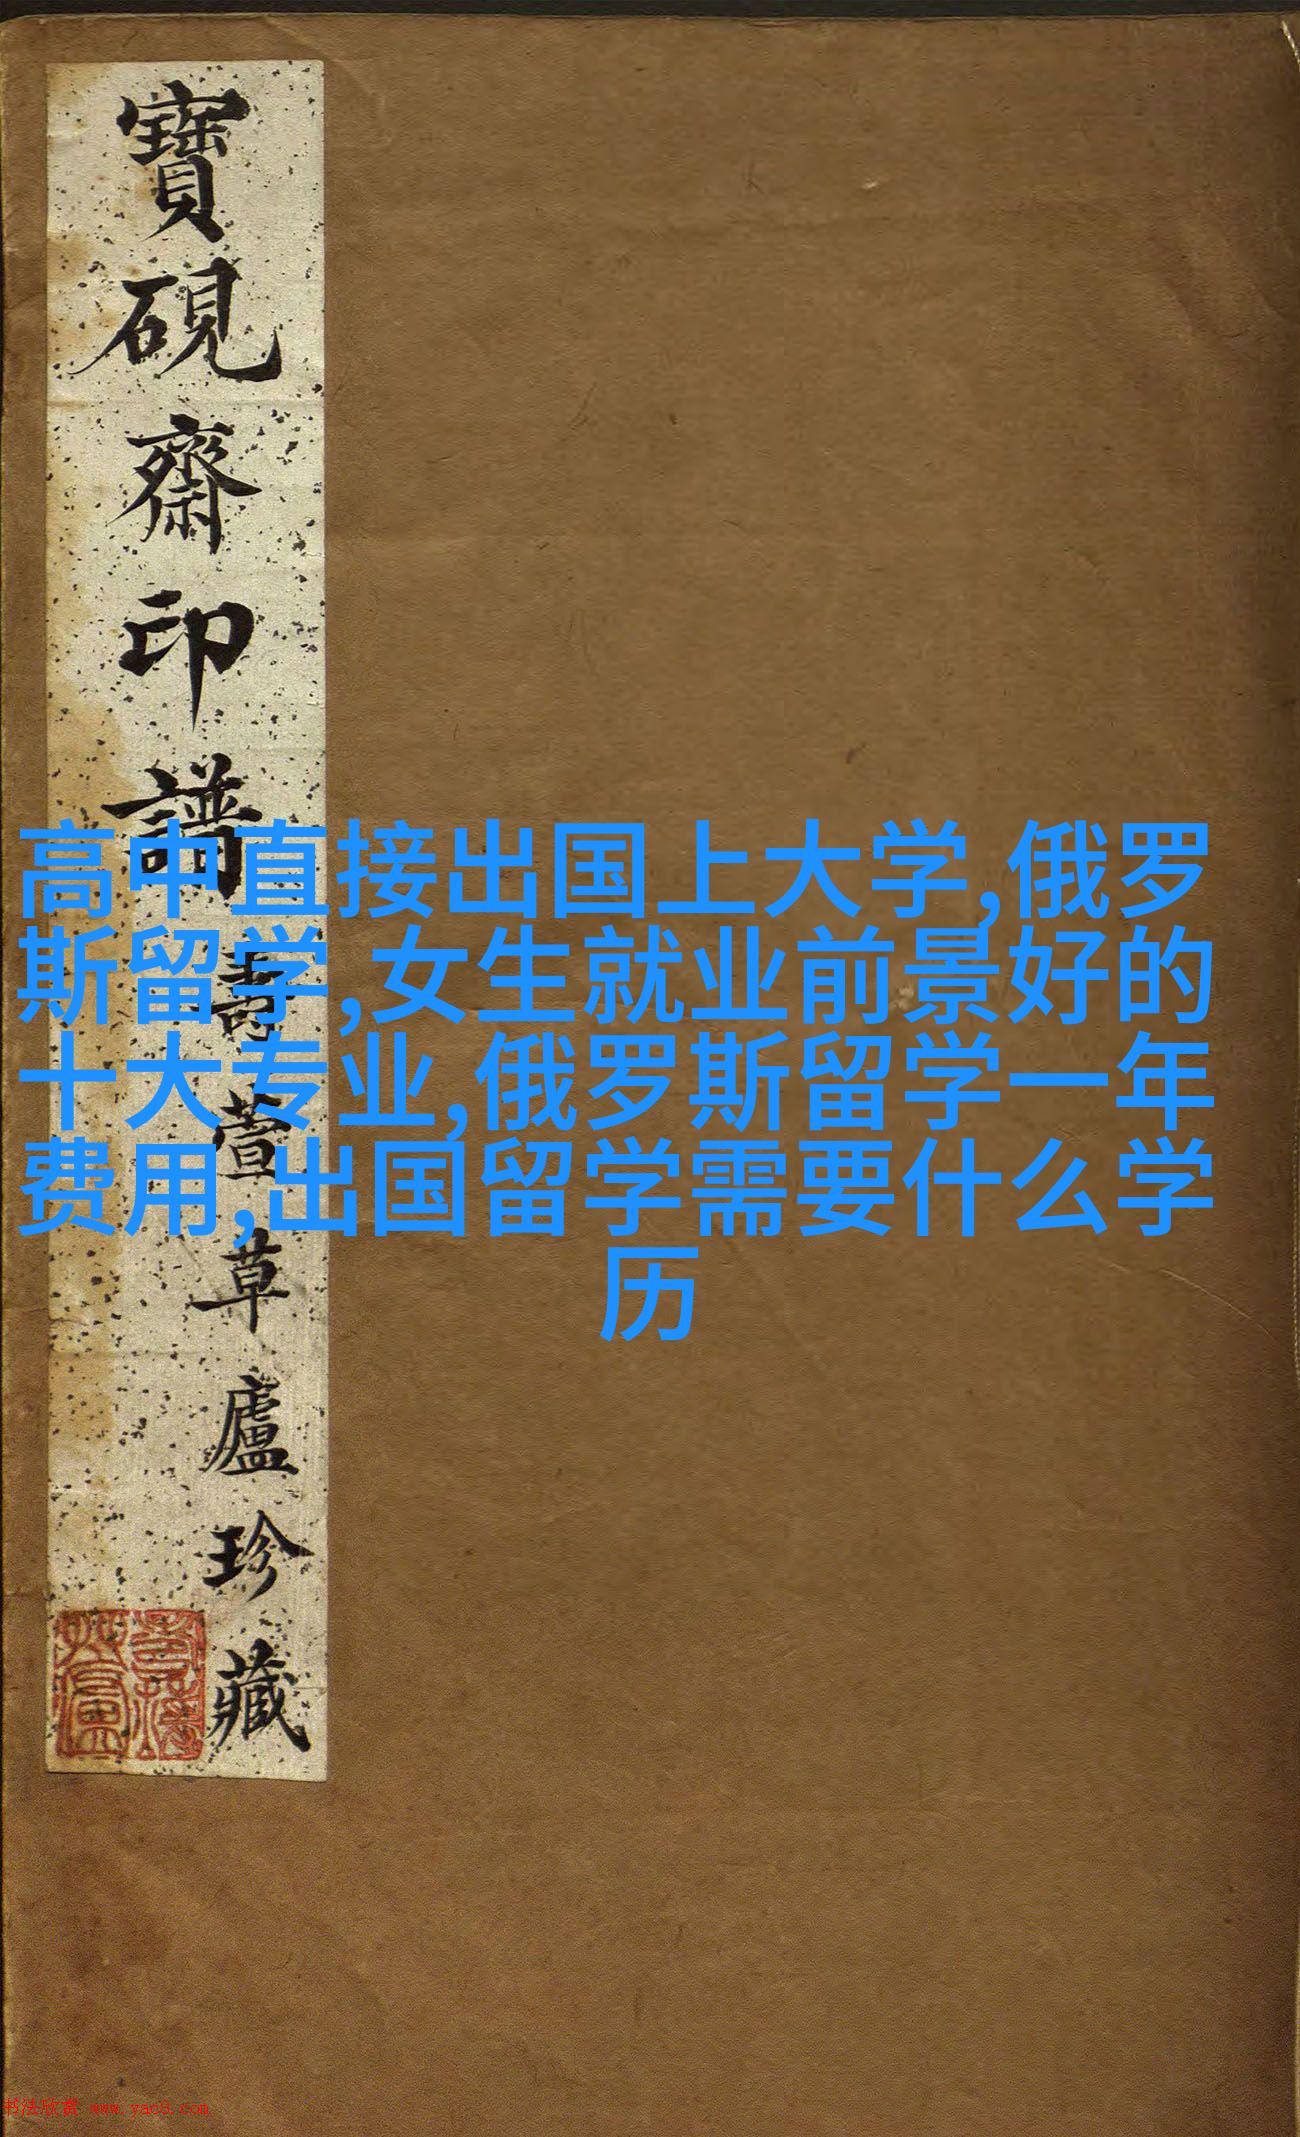 寶硯齋印譜
壽萱草廬珍藏
高中直接出国上大学,俄罗
斯留学,女生就业前景好的
十大专业,俄罗斯留学一年
费用,出国留学需要什么学
历
书法欣赏 www.yac8.com